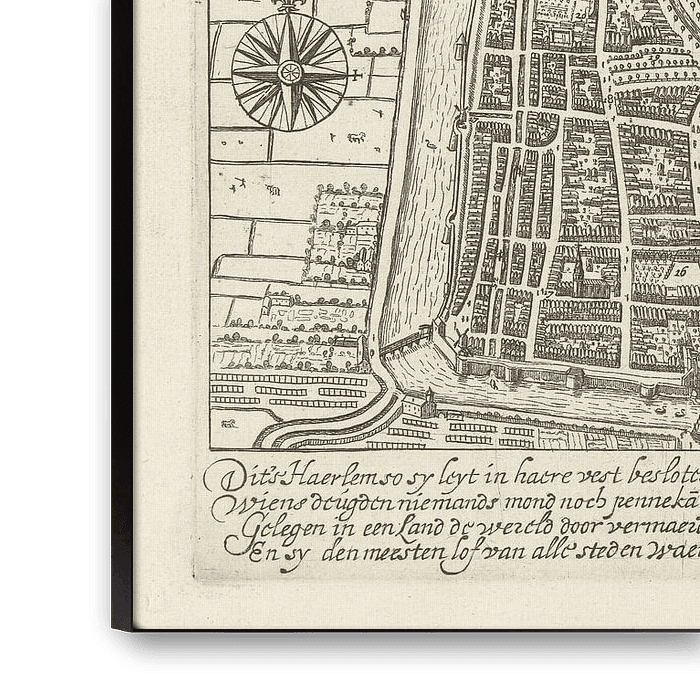 16
Dit's Haerlem so sy leyt in haere vest beslott
Wiens deugden niemands mond noch penne ka
Gelegen in een Land de wereld door vermae
En sy den meesten lof van alle steden wae